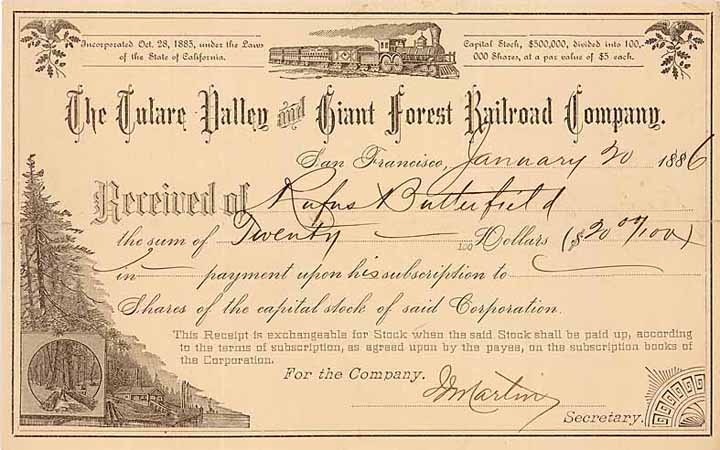 Incorporated Oct. 28, 1885, under the Laws
of the State of California.
Capital Stock, $500,000, divided into 100,-
000 Shares, at a par value of $5 each.
The Tulare Valley and Giant Forest Railroad Company.
San Francisco, January 20 1886
Received of Rufus Butterfield
the sum of Twenty 100 Dollars ($20 00/100)
in payment upon his subscription to
Shares of the capital stock of said Corporation.
This Receipt is exchangeable for Stock when the said Stock shall be paid up, according
to the terms of subscription, as agreed upon by the payee, on the subscription books of
the Corporation.
For the Company.
Martin
Secretary.